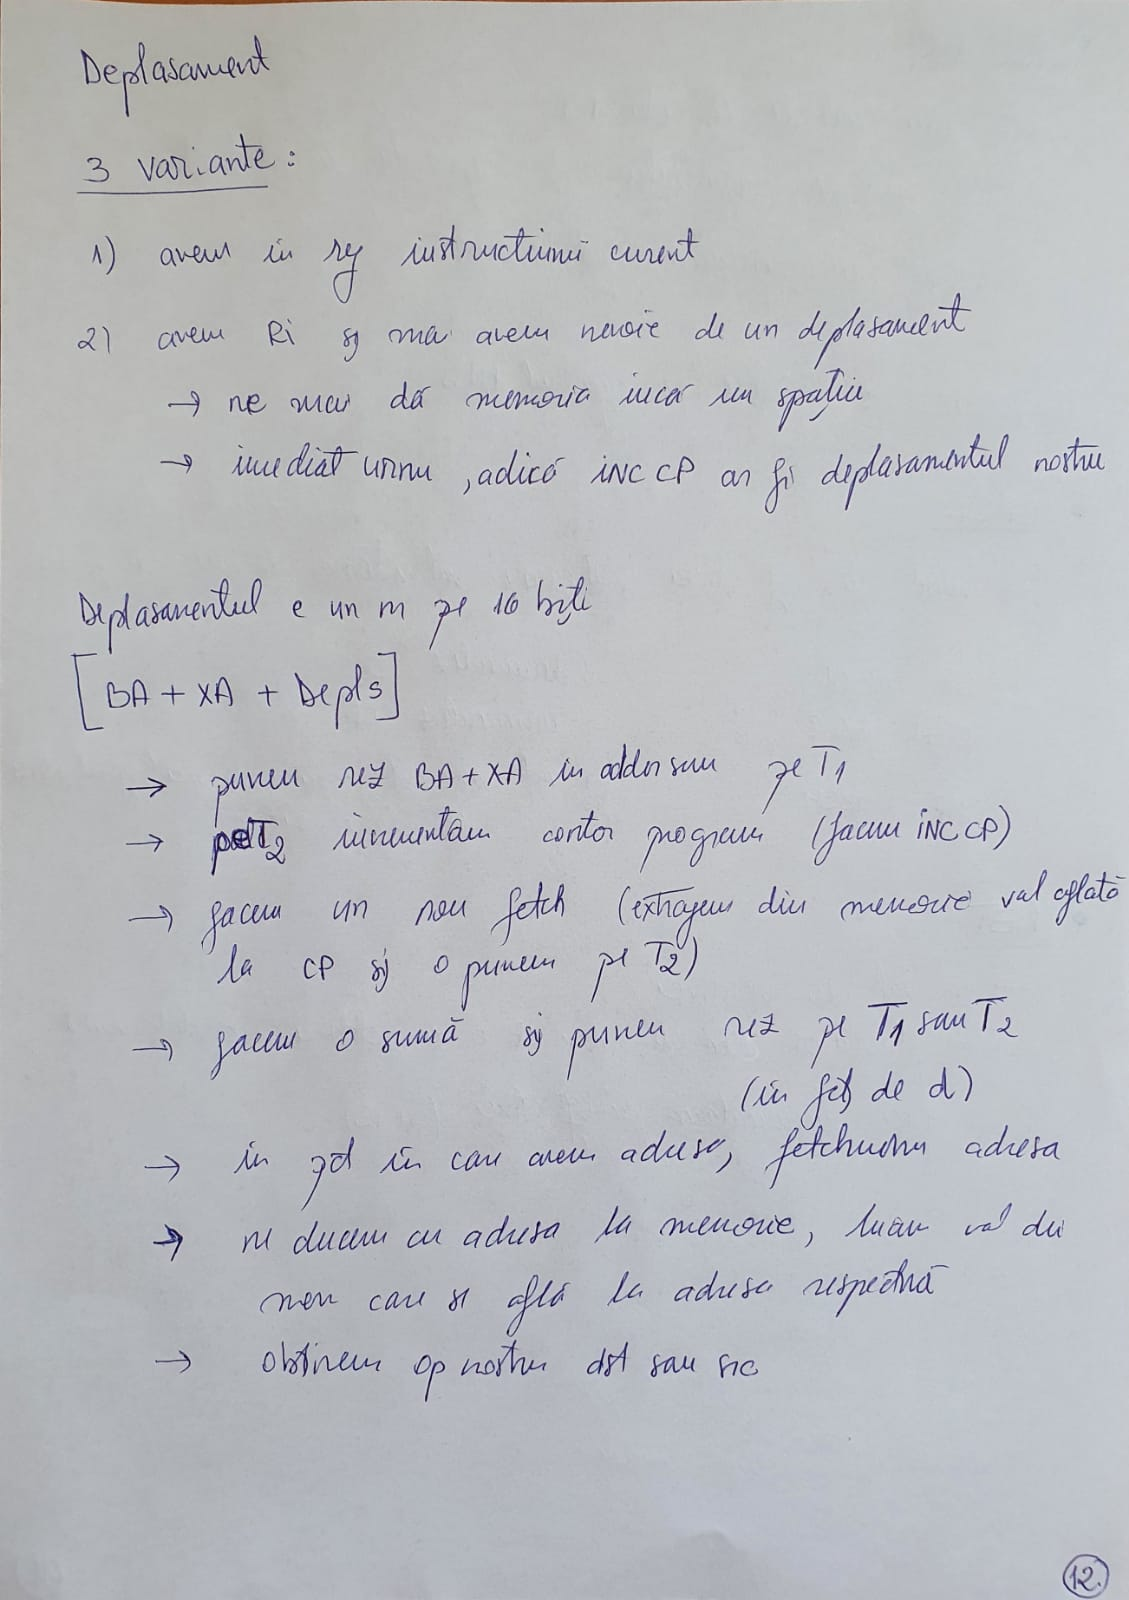 Deplasament
3 variante:
1) avem în rg instrucțiunii curent
2) avem Ri și mai avem nevoie de un deplasament
→ ne mai dă memoria încă un spațiu
→ imediat urmu, adică INC CP ar fi deplasamentul nostru
Deplasamentul e un nr pe 16 biți
[BA + XA + Depls]
→ punem rez BA + XA în addor sau pe T1
→ pe T2 incrementăm contor program (facem INC CP)
→ facem un nou fetch (extragem din memorie val aflată
la CP și o punem pe T2)
→ facem o sumă și punem rez pe T1 sau T2
(în fcț de d)
→ în care avem adresa, adresa
→ ne ducem cu adresa la memorie, luăm val din
mem care se află la adresa respectivă
→ obținem op nostru dst sau src
12.